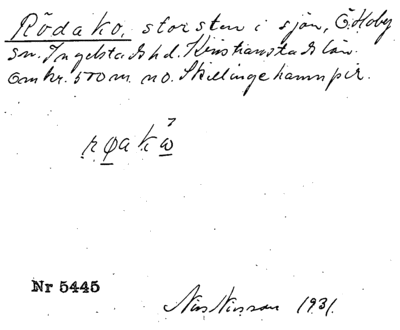 Röda ko, stor sten i sjön, Ö. Hoby
sn. Ingelstads hd. Kristianstads län.
Omkr. 500 m. no. Skillinge hamnpir.
Nr 5445
Nils Nilsson 1931.